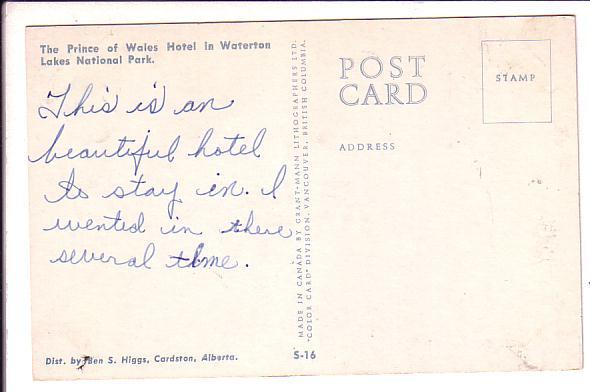 The Prince of Wales Hotel in Waterton
Lakes National Park.
This is an
beautiful hotel
to stay in. I
wented in there
several time.
Dist. by Ben S. Higgs, Cardston, Alberta.
MADE IN CANADA BY GRANT-MANN LITHOGRAPHERS LTD.
"COLOR CARD" DIVISION, VANCOUVER, BRITISH COLUMBIA.
S-16
POST
CARD
ADDRESS
STAMP